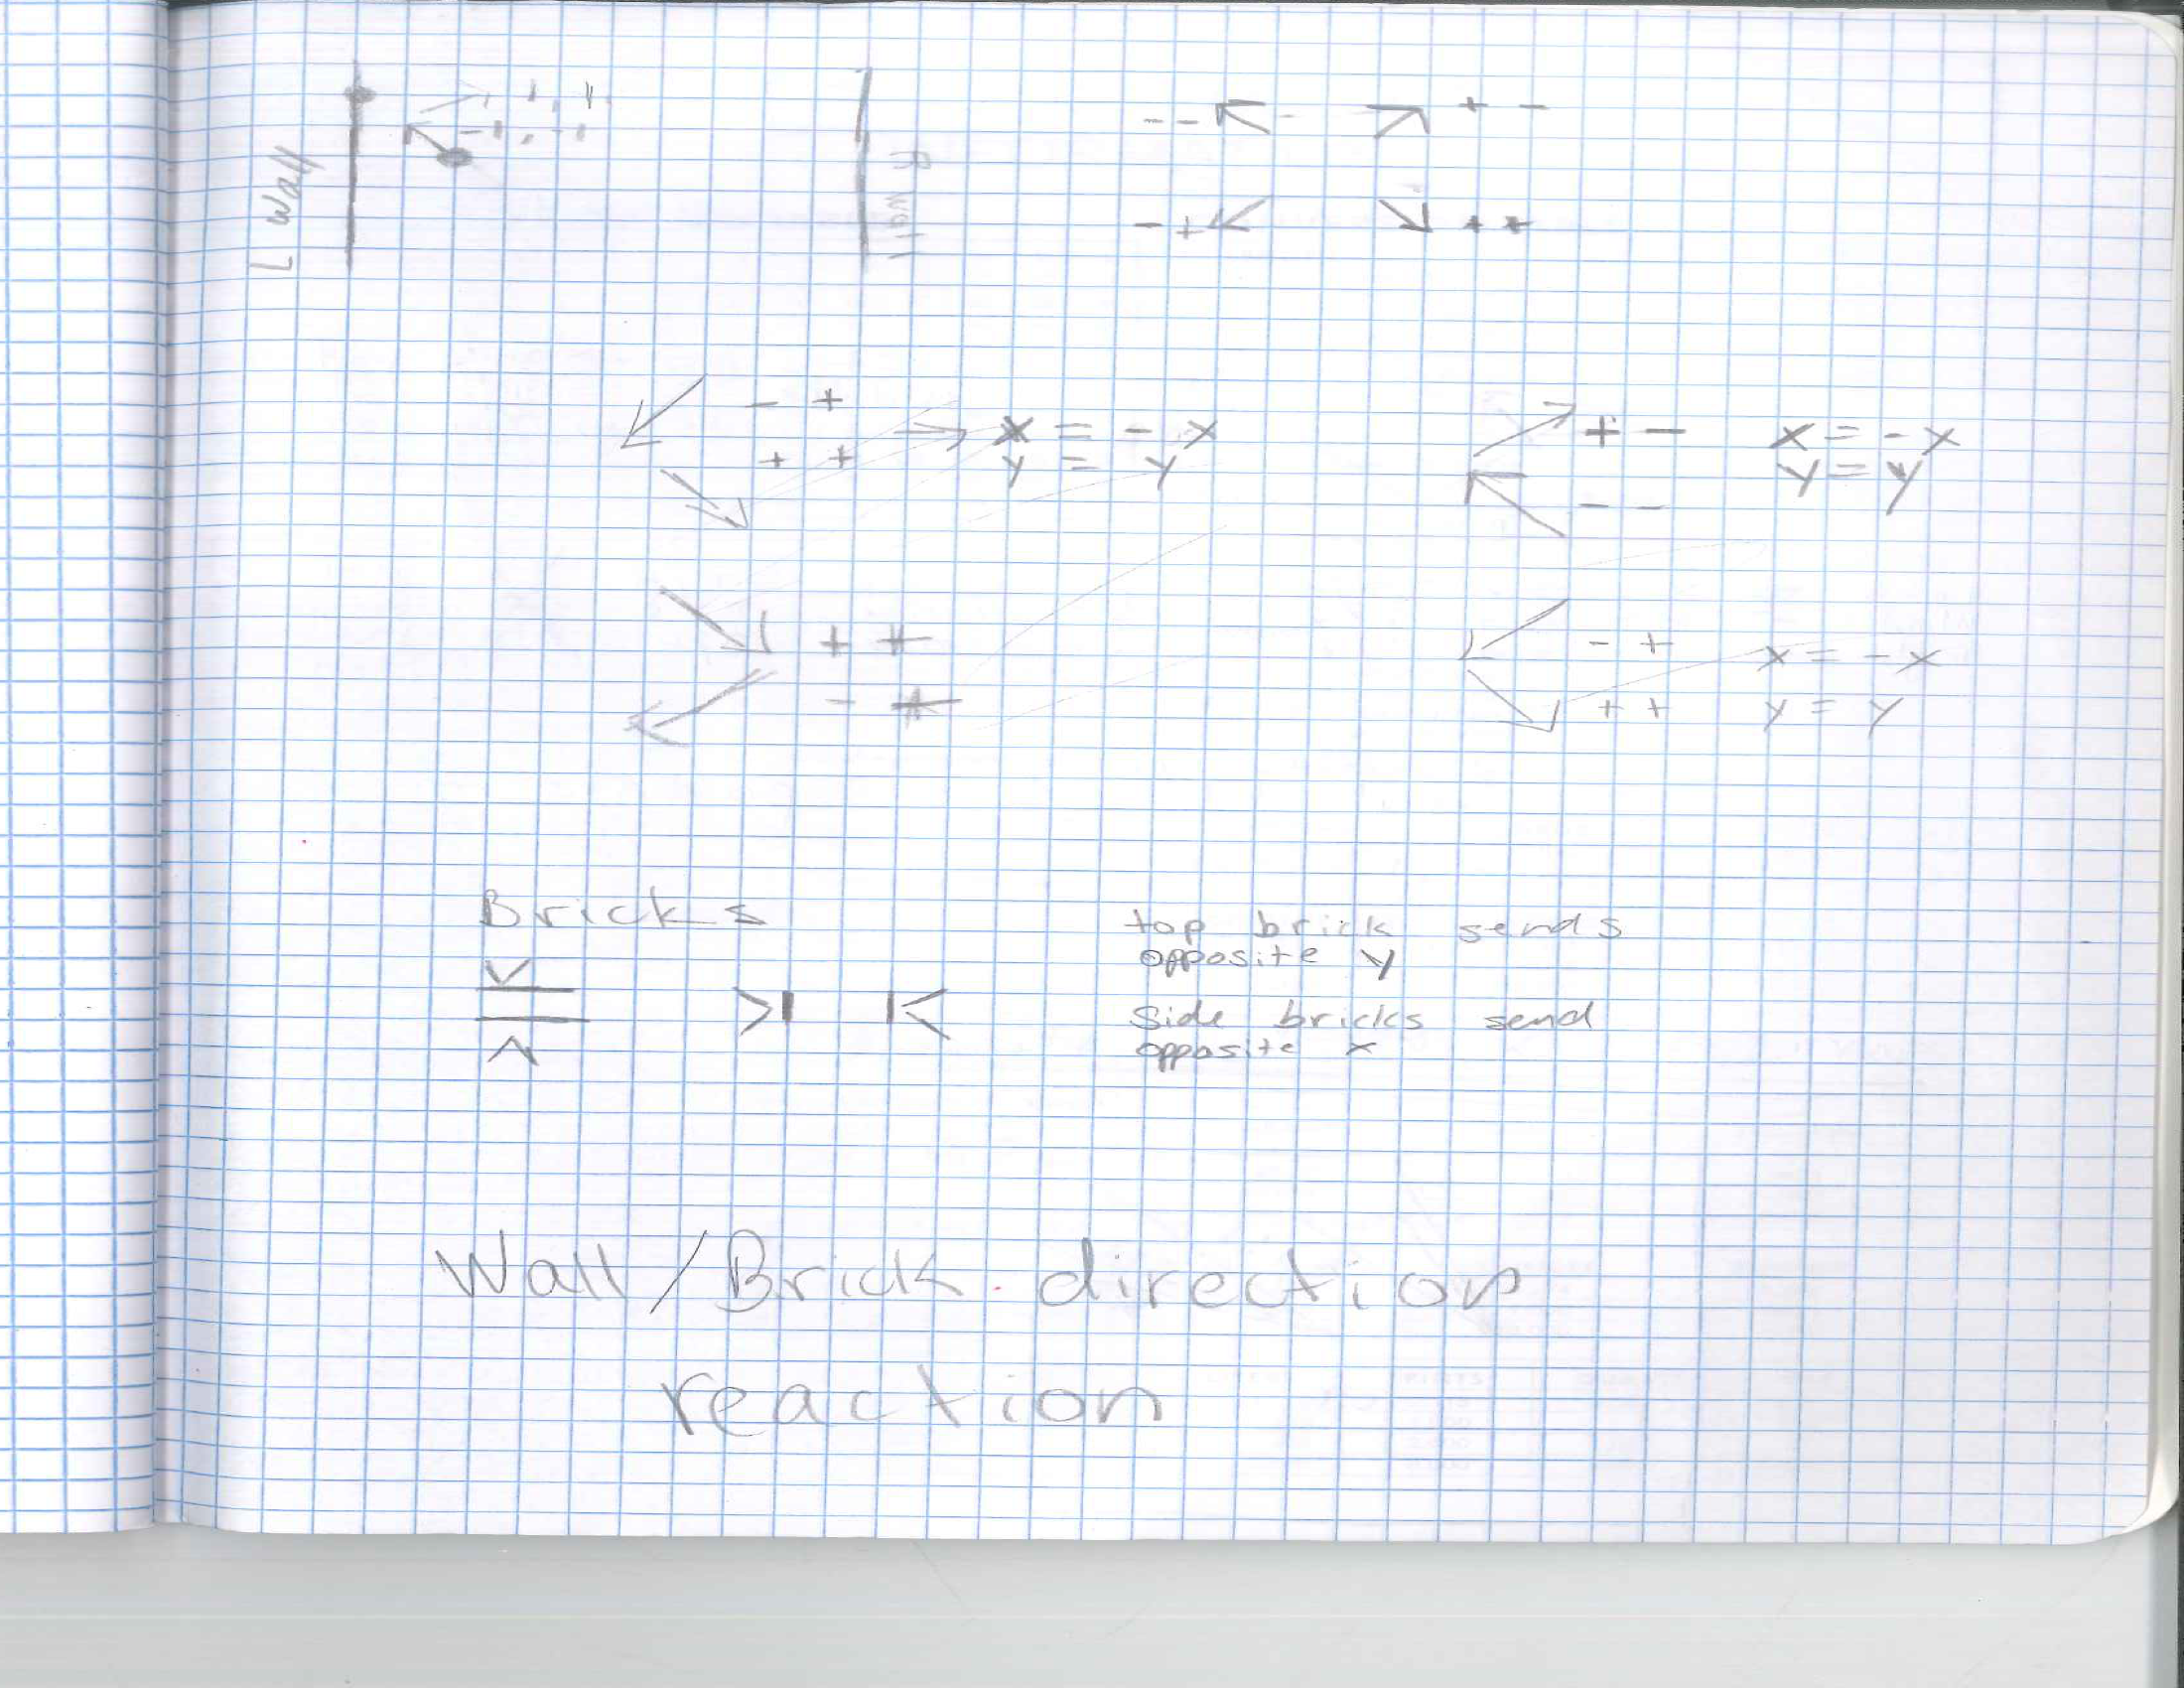 L Wall
R Wall
- - + -
- + + +
- +
+ +
x = - x
y = y
+ -
- -
x = - x
y = y
+ +
- +
- +
+ +
x = - x
y = y
Bricks
top brick sends
opposite y
Side bricks send
opposite x
Wall/Brick direction
reaction